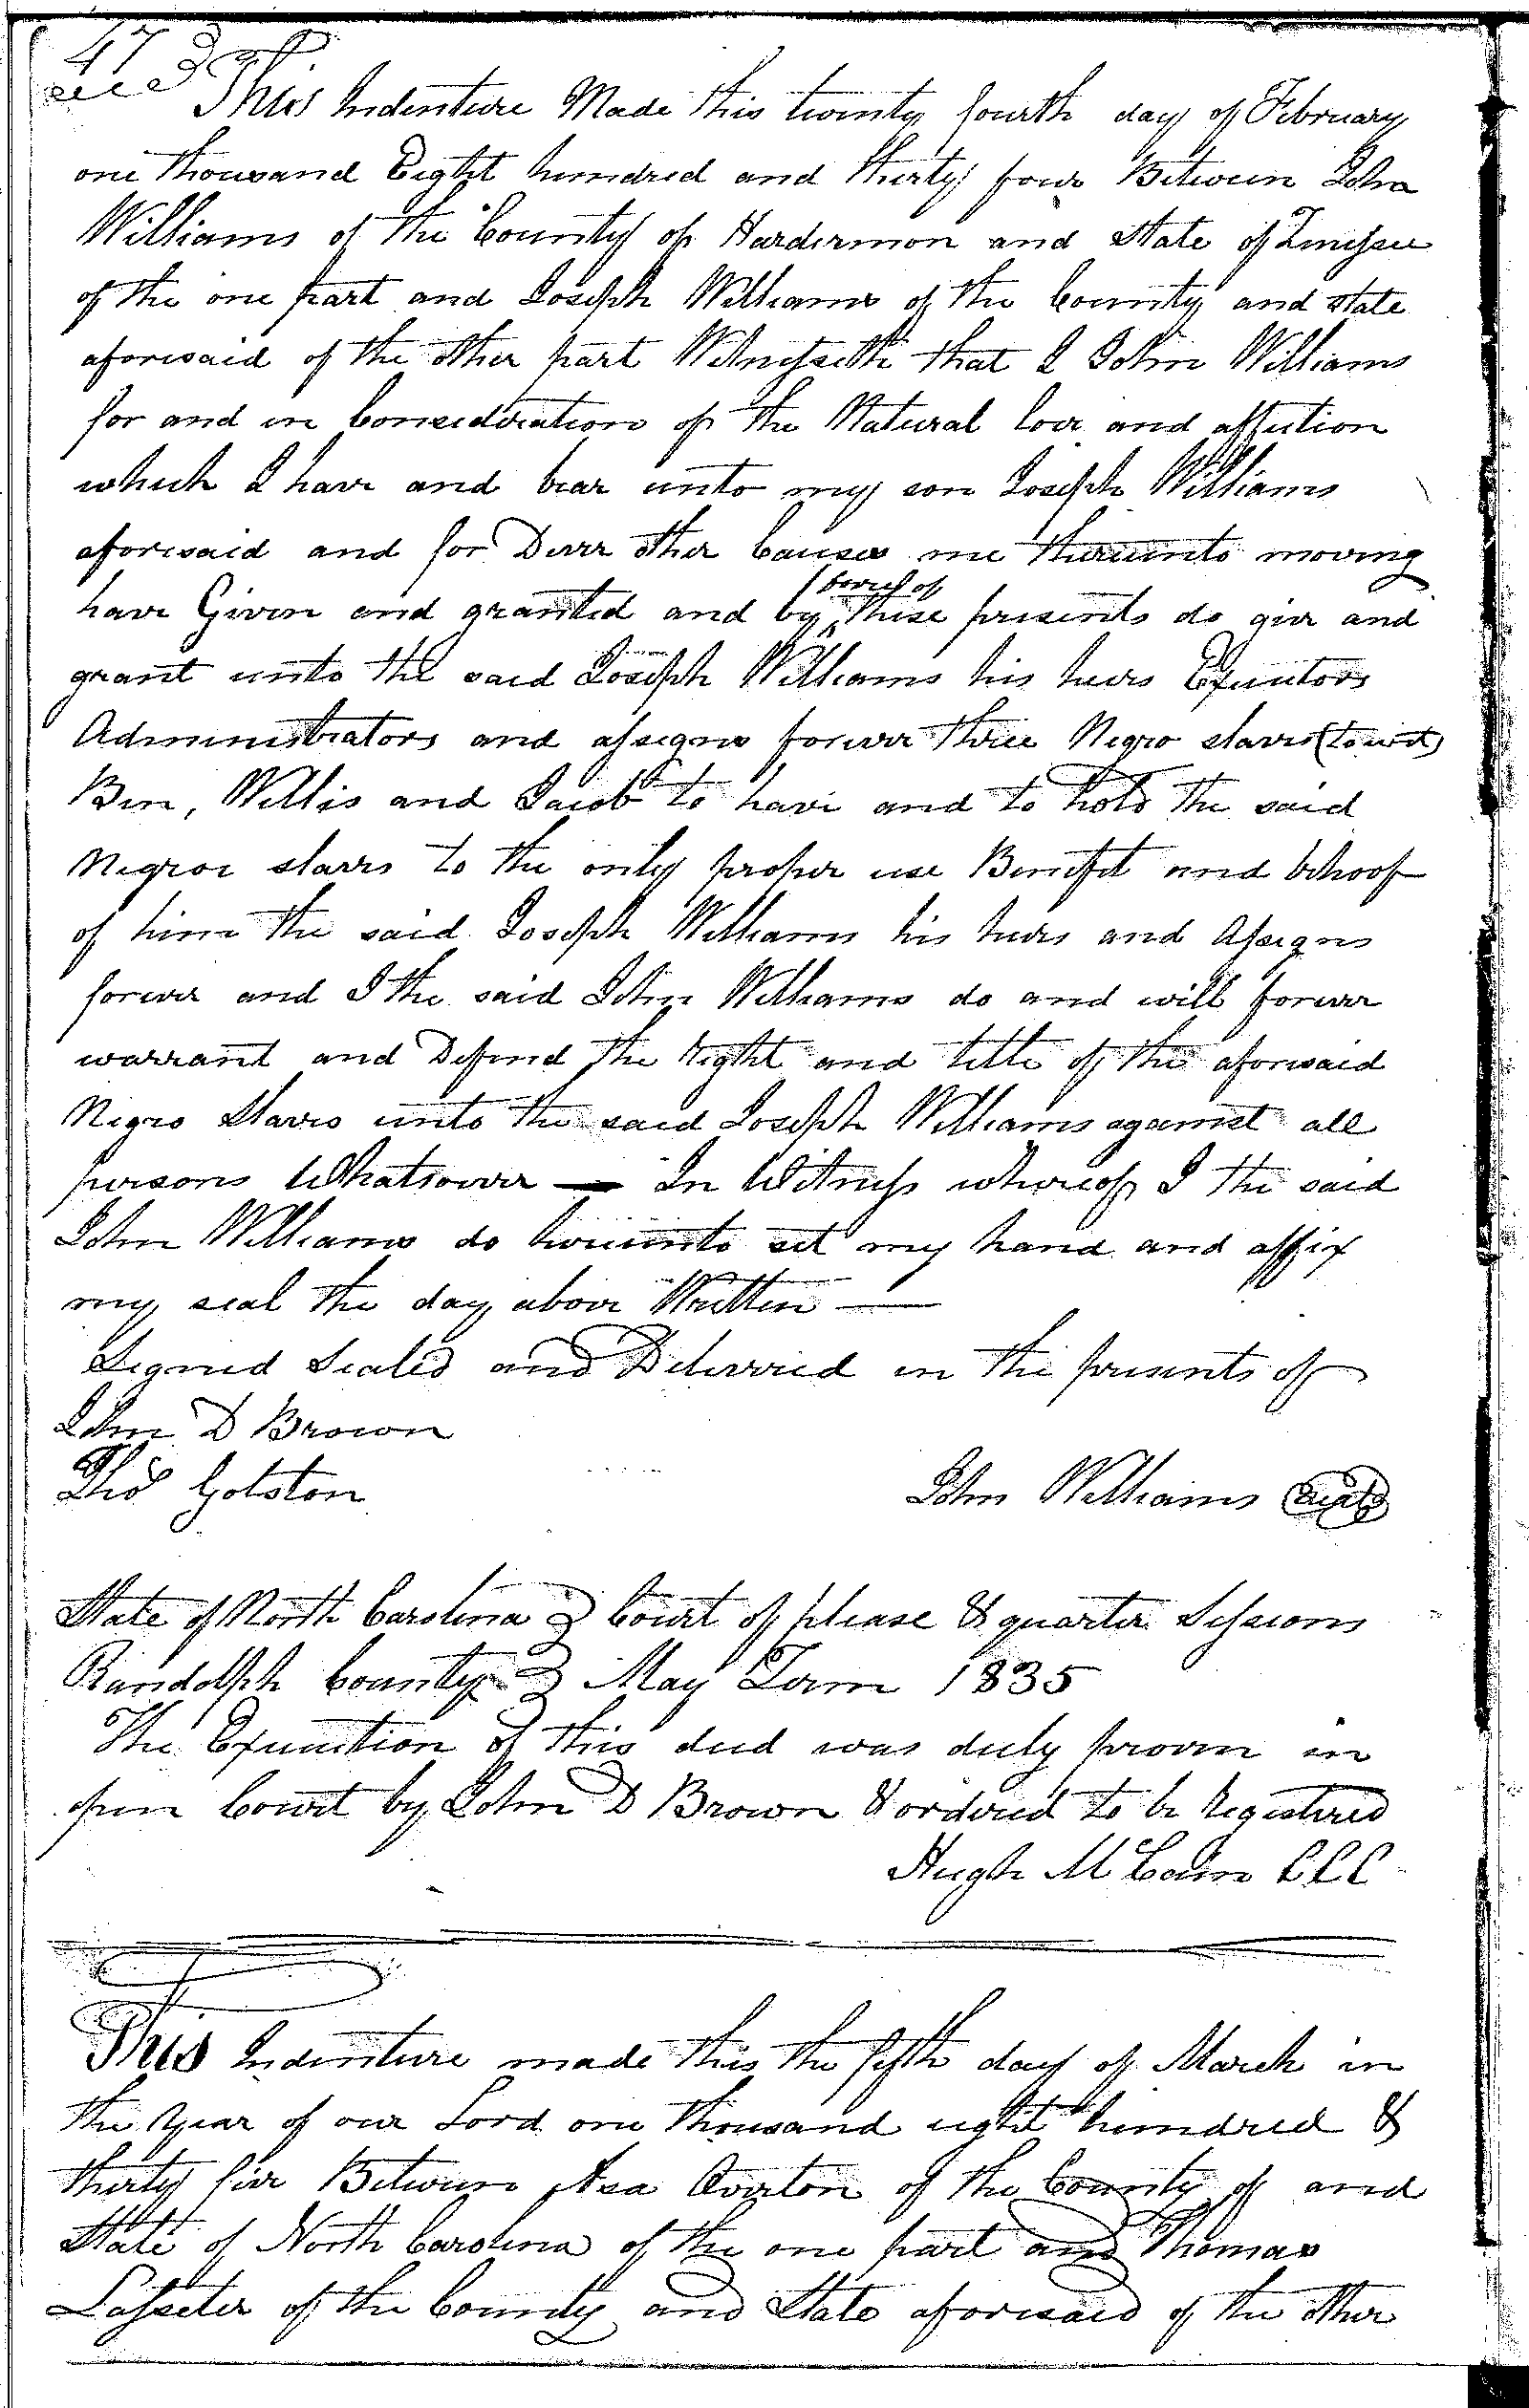 473
This Indenture Made this twenty fourth day of February
one thousand Eight hundred and thirty four Between John
Williams of the County of Hardermon and State of Tennessee
of the one part and Joseph Williams of the County and state
aforesaid of the other part Witnesseth that I John Williams
for and in Consideration of the Natural love and affection
which I have and bear unto my son Joseph Williams
aforesaid and for Diver other Causes me thereunto moving
have Given and granted and by these presents do give and
grant unto the said Joseph Williams his heirs Executors
Administrators and assigns forever three Negro slaves (towit)
Ben, Willis and Jacob to have and to hold the said
Negroe slaves to the only proper use Benefit and behoof
of him the said Joseph Williams his heirs and Assigns
forever and I the said John Williams do and will forever
warrant and Defend the Right and title of the aforesaid
Negro Slaves unto the said Joseph Williams against all
persons Whatsoever — In Witness whereof I the said
John Williams do hereunto set my hand and affix
my seal the day above Written —
Signed Sealed and Delivered in the presents of
John D Brown
Thos Golston
John Williams Seal
State of North Carolina } Court of please & quarter Sessions
Randolph County } May Term 1835
The Execution of this deed was duly proven in
open Court by John D Brown & ordered to be Registered
Hugh McCain CCC
This Indenture made this the fifth day of March in
the Year of our Lord one thousand eight hundred &
thirty five Between Asa Overton of the County of and
State of North Carolina of the one part and Thomas
Lasseter of the County and State aforesaid of the other